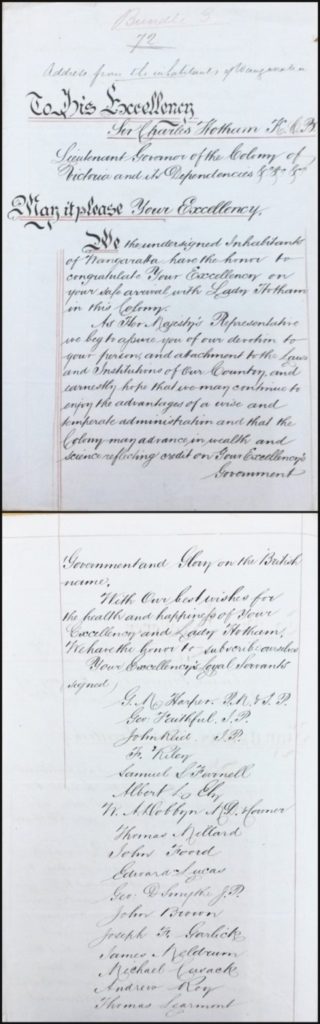 Bundle 3
72
Address from the inhabitants of Wangaratta
To His Excellency
Sir Charles Hotham K.C.B
Lieutenant Govenor of the Colony of
Victoria and its Dependencies &c &c &c
May it please Your Excellency.
We the undersigned Inhabitants
of Wangaratta have the honor to
congratulate Your Excellency on
your safe arrival with Lady Hotham
in this Colony.
As Her Majesty's Representative
we beg to assure you of our devotion to
your person, and attachment to the Laws
and Institutions of Our Country and
earnestly hope that we may continue to
enjoy the advantages of a wise and
temperate administration and that the
Colony may advance in wealth and
science reflecting credit on Your Excellency's
Government
Government and Glory on the British
name.
With Our best wishes for
the health and happiness of Your
Excellency and Lady Hotham.
We have the honor to subscribe ourselves
Your Excellency's Loyal Servants
signed,
G. M. Harper P.M. & J.P.
Geo. Faithful, J.P.
John Reid J.P.
F. Riley
Samuel S Farnell
Albert L Ely
W. A. Dobbyn M.D. & Coroner
Thomas Millard
John Foord
Edward Lucas
Geo. D Smythe J.P.
John Brown
Joseph F. Garlick
James Meldrum
Michael Cusack
Andrew Roy
Thomas Learmont